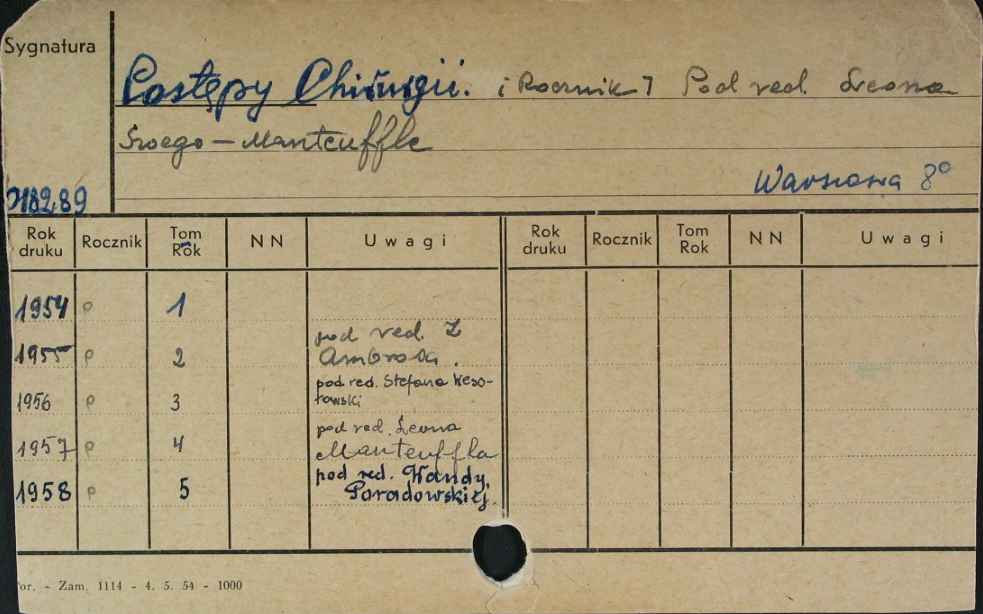 Sygnatura
Postępy Chirurgii. [Rocznik] Pod red. Leona
Manteuffla
Warszawa 8°
Rok druku Rocznik Tom Rok N N Uwagi Rok druku Rocznik Tom Rok N N Uwagi
1954 ρ 1
1955 ρ 2 pod red. Z
Ambrosa.
1956 ρ 3 pod red. Stefana Weso-
łowski
1957 ρ 4 pod red. Leona
Manteuffla
1958 ρ 5 pod red. Wandy
Paradowskiej.
or. - Zam. 1114 - 4. 5. 54 - 1000